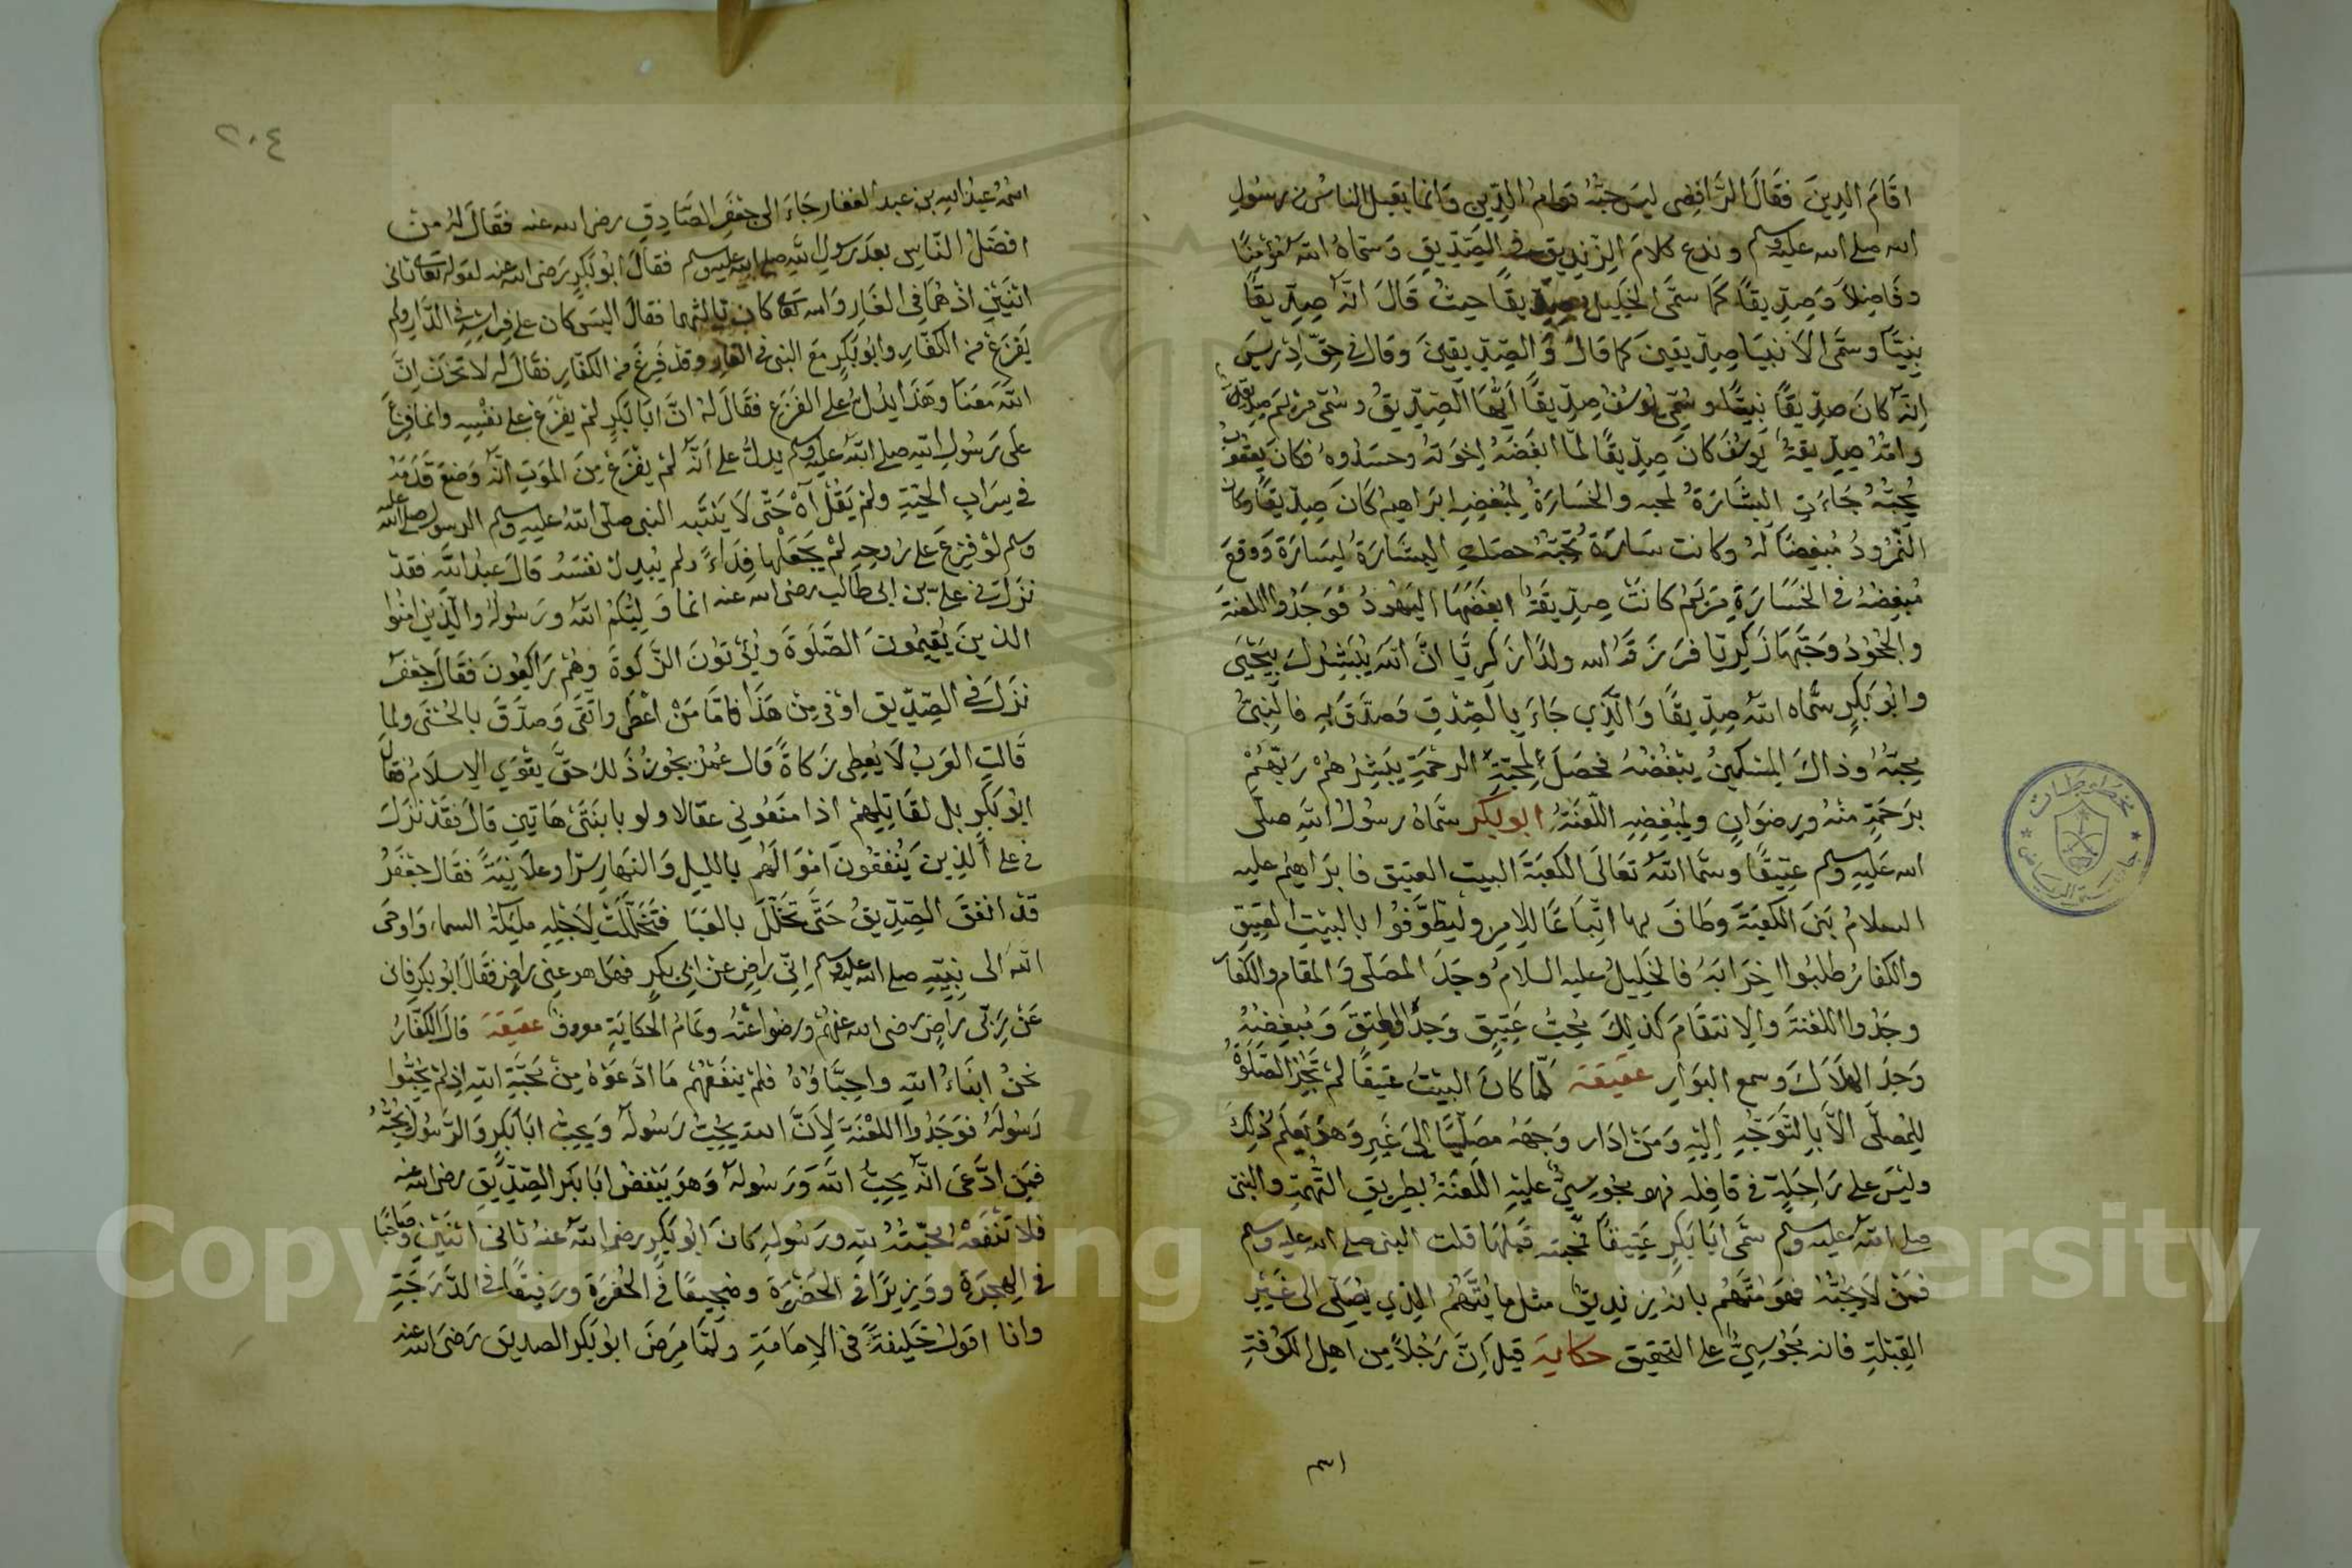 اقَامَ الدِينَ فقَالَ الرَّافِضِى ليسَ حبُّهُ قوامُ الدِّينِ وَانما يقبل الناسُ من رسُولِ
الله صلى الله عليه وسلم وندع كلامَ الزنديق في الصِّدِّيقِ وَسَمَّاهُ اللهُ مؤمنًا
وفَاضِلاً وَصِدِّيقًا كمَا سَمَّى الخليل صِدِّيقًا حيثُ قَالَ انَّهُ صِدِّيقًا
نبيًّا وسمَّى الانبيَا صِدِّيقينَ كما قالَ وَالصِّدِّيقينَ وقال في حقِّ ادريسَ
انّهُ كانَ صِدِّيقًا نبيًّا وسُمِّى يُوسُفُ صِدِّيقًا ايُّهَا الصِّدِّيقُ وسُمّى مريَم صِدّيقة
وامُّهُ صِدِّيقةٌ يُوسُفَ كانَ صِدِّيقًا لمّا ابغَضَهُ اخوتهُ وحسَدُوهُ فكانَ يعقوبُ
يُحبُّهُ جَاءَتِ البشَارَةُ لمحبه والخسَارَةُ لمُبغضِهِ ابرَاهيمُ كَانَ صِدِّيقًا وكان
النَّمْرُودُ مُبغضًا لهُ وكانت سَارَةُ تُحِبُّهُ حصَلت البشَارَةُ لسَارَةَ وَوقعَ
مُبغِضُهُ في الخسَارَةِ مَريَمُ كانت صِدِّيقَةً ابغضَهَا اليَهُودُ فوَجَدُوا اللعْنةَ
والجُحُودُ وَحبَّهَا زَكريّا فرزقَهُ الله ولدًا زكريَّا انَّ اللهَ يُبَشِّرُكَ بيَحْيَى
وابُو بَكرٍ سَمَّاه اللهُ صِدِّيقًا وَالَّذِي جَاءَ بالصِّدْقِ وَصَدَّقَ بِهِ فالنبيُّ
يحبّهُ وذاكَ المسكينُ يبْغُضُهُ فحصَلَ لمُحبِّهِ الرحْمَةِ يُبَشِّرُهُمْ رَبّهُمْ
برَحمَةٍ منْهُ وَرِضوَانٍ ولمُبْغِضِهِ اللّعْنَةُ ابو بَكر سَمَّاهُ رسُولُ اللهِ صلّى
الله عَليهِ وسلم عتيقًا وسمَّا اللهُ تعَالَى الكعبَةَ البيت العتيق فابرَاهيمُ عليه
السلامُ بَنَى الكَعْبَةَ وطَافَ بها اتِّبَاعًا للامرِ وليطَّوَّفُوا بالبيْتِ العتيقِ
والكفارُ طلبُوا خَرَابَهُ فالخليلُ عليه السلامُ وجَدَ المصَلّى وَالمقام والكفارُ
وجَدُوا اللعْنةَ والانتقَامَ كذلِكَ مُحِبُّ عَتيقٍ وَجدَ العِتقَ وَمُبغِضُهُ
وَجَدَ الهلَاكَ وسمع البَوَار عقيقة لمّا كانَ البيْتُ عَتيقًا لم تَجُز الصَّلوةُ
للمُصَلّى الاَّ بالتَّوَجُّهِ اليْهِ وَمَنْ ادَار وجهَهُ مصَلّيًا الى غَيرِهِ وَهوَ يعلَم ذلكَ
وليسَ على رَاحلَةٍ في قافِلَه فهو مجُوسِيٌّ عليْهِ اللعْنَةُ بطريقِ التُّهْمَةِ والنبى
صلى اللهُ عليه وسلم سَمَّى ابَا بَكرٍ عَتيقًا فمحبته قبلهَا قلت النبى صلى الله عليه وسلم
فمَنْ لاَ يحُبُّهُ فهوَ مُتَّهَم بانهُ زنديقٌ مثل ما يُتَّهَمُ الذي يُصَلّى الى غَيْرِ
القِبْلَةِ فانه مجُوسِيٌّ على التحقيق حكاية قيل انَّ رَجُلاً من اهلِ الكُوْفَةِ
اس
٢٠٤
اسمُهُ عبدُ الله بن عبد الغفار جَاءَ الى جعْفَر الصَّادقِ رضى الله عنه فقَالَ لهُ من
افضَلُ النّاسِ بعدَ رسول اللهِ صلى الله عليه وسلم فقالَ ابُو بَكرٍ رَضى الله عنه لقوله تعَالى ثانى
اثنَيْنِ اذ هُمَا فى الغَارِ وَالله تعَالى كان ثالثهما فقالَ اليسَ كان علي فِراشِهِ في الدَّارِ ولم
يَفزَع من الكفّارِ وابُو بكرٍ مَعَ النبى في الغارِ وقدْ فَزِعَ من الكفارِ فقالَ لهُ لا تحْزَنْ انَّ
اللهَ مَعَنَا وهَذَا يدُلُّ على الفَزَع فقَالَ لهُ انَّ ابَا بَكرٍ لمْ يفْزَعْ على نفْسِهِ وانما فزِعَ
عَلى رَسُولِ اللهِ صلى اللهُ عليْهِ وسلم يدلُّ على انَّهُ لمْ يفْزَعْ مِنَ الموَتِ انَّهُ وَضعَ قدَمَهُ
في سِرَابِ الحيَّةِ ولمْ يَقُلْ آهْ حَتّى لَا يَنتَبه النبى صلى اللهُ عليهِ وسلم الرسول صلى الله عليه
وسلم لوْ فزِعَ على رُوحِهِ لمْ يَجعَلْها فِدَاءً ولم يُبدِلْ نفسَهُ قالَ عَبْدُ اللهِ فقدْ
نزَلَ في عليّ بن ابى طَالِب رضى الله عنه انما وَليُّكمُ اللهُ ورَسُولهُ والذين امنُوا
الذينَ يُقيمُونَ الصَّلوةَ ويُؤتوُنَ الزّكوةَ وهُمْ رَاكِعُونَ فقَالَ جعفَرُ
نزَلَ في الصِّدِّيق اوفى مِنْ هَذَا فامَّا مَنْ اعْطَى واتّقَى وَصدَّقَ بالحُسْنَى ولما
قَالتِ العَربُ لَا نُعطِى زكاةً قالَ عُمَرُ يجُوزُ ذَلكَ حتَّى يقوَى الاسلَامُ فقالَ
ابُو بَكرٍ بل نقَاتِلهمْ اذا منَعُونى عقالا ولو بابنَتَىَّ هَاتينِ قالَ فقَدْ نَزَلَ
في علي الَّذينَ يُنْفقُونَ امْوَالَهُم بالليلِ وَالنهَارِ سرّا وعلَانيَةً فقَال جعْفَرُ
قدْ انفقَ الصِّدِّيقُ حَتَّى تَخَلَّلَ بالعَبَا فتَخَلَّلَتْ لاَجْلِهِ ملَيكَةُ السماءِ وَاوحَى
اللهُ الى نبيّهِ صلى الله عليه وسلم انّى رَاضٍ عنْ ابى بكرٍ فهل هو عنى راضٍ فقالَ ابُو بكر فانى
عَنْ رَبّى رَاضٍ رضى الله عنهُمْ ورضوا عنْهُ وتمَامُ الحكايَةِ معروفٌ عقيقة قالَ الكفّارُ
نحنُ ابنَاءُ اللهِ واحِبَّاؤهُ فلمْ ينفَعْهُمْ مَا ادَّعَوْهُ مِنْ مَحَبّةِ اللهِ اذ لمْ يُحِبُّوا
رَسُولَهُ فوَجَدُوا اللعْنَةَ لِاَنَّ الله يُحِبُّ رَسُولهُ وَيحِبُّ ابَا بَكرٍ وَالرَّسُولُ يُحبُّهُ
فمَن ادَّعَى انّهُ يحِبُّ اللهَ وَرَسُولهُ وَهوَ يَبْغضُ ابَا بَكر الصِّدِّيق رضى الله عنه
فلا تَنْفَعْهُ المحَبّةُ للهِ ورَسُولهِ كانَ ابُو بَكرٍ رضى اللهُ عنهُ ثانى اثنَيْنِ وصَاحبًا
في الهجرَةِ ووَزيرًا في الحَضرَةِ وضَجيعًا في الحُفرَةِ ورَفيقًا في الدَّرَجَةِ
وانا اقولُ خَليفَةً في الامامَةِ ولمَّا مَرِضَ ابُو بَكر الصديق رَضىَ الله عنه
Copyright © King Saud University